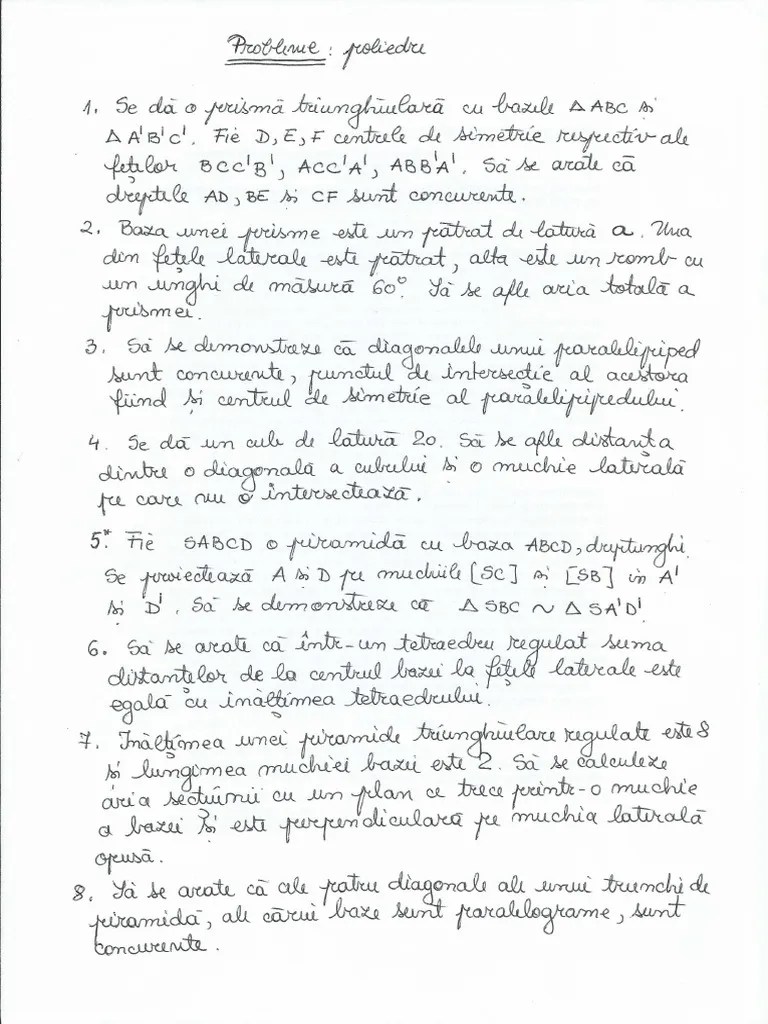 Probleme: poliedre
1. Se dă o prismă triunghiulară cu bazele △ABC și
△A'B'C'. Fie D, E, F centrele de simetrie respectiv ale
fețelor BCC'B', ACC'A', ABB'A'. Să se arate că
dreptele AD, BE și CF sunt concurente.
2. Baza unei prisme este un pătrat de latură a. Una
din fețele laterale este pătrat, alta este un romb cu
un unghi de măsură 60°. Să se afle aria totală a
prismei.
3. Să se demonstreze că diagonalele unui paralelipiped
sunt concurente, punctul de intersecție al acestora
fiind și centrul de simetrie al paralelipipedului.
4. Se dă un cub de latură 20. Să se afle distanța
dintre o diagonală a cubului și o muchie laterală
pe care nu o intersectează.
5*. Fie SABCD o piramidă cu baza ABCD, dreptunghi.
Se proiectează A și D pe muchiile [SC] și [SB] în A'
și D'. Să se demonstreze că △SBC ~ △SA'D'
6. Să se arate că într-un tetraedru regulat suma
distanțelor de la centrul bazei la fețele laterale este
egală cu înălțimea tetraedrului.
7. Înălțimea unei piramide triunghiulare regulate este 8
și lungimea muchiei bazei este 2. Să se calculeze
aria secțiunii cu un plan ce trece printr-o muchie
a bazei și este perpendiculară pe muchia laterală
opusă.
8. Să se arate că cele patru diagonale ale unui trunchi de
piramidă, ale cărui baze sunt paralelograme, sunt
concurente.